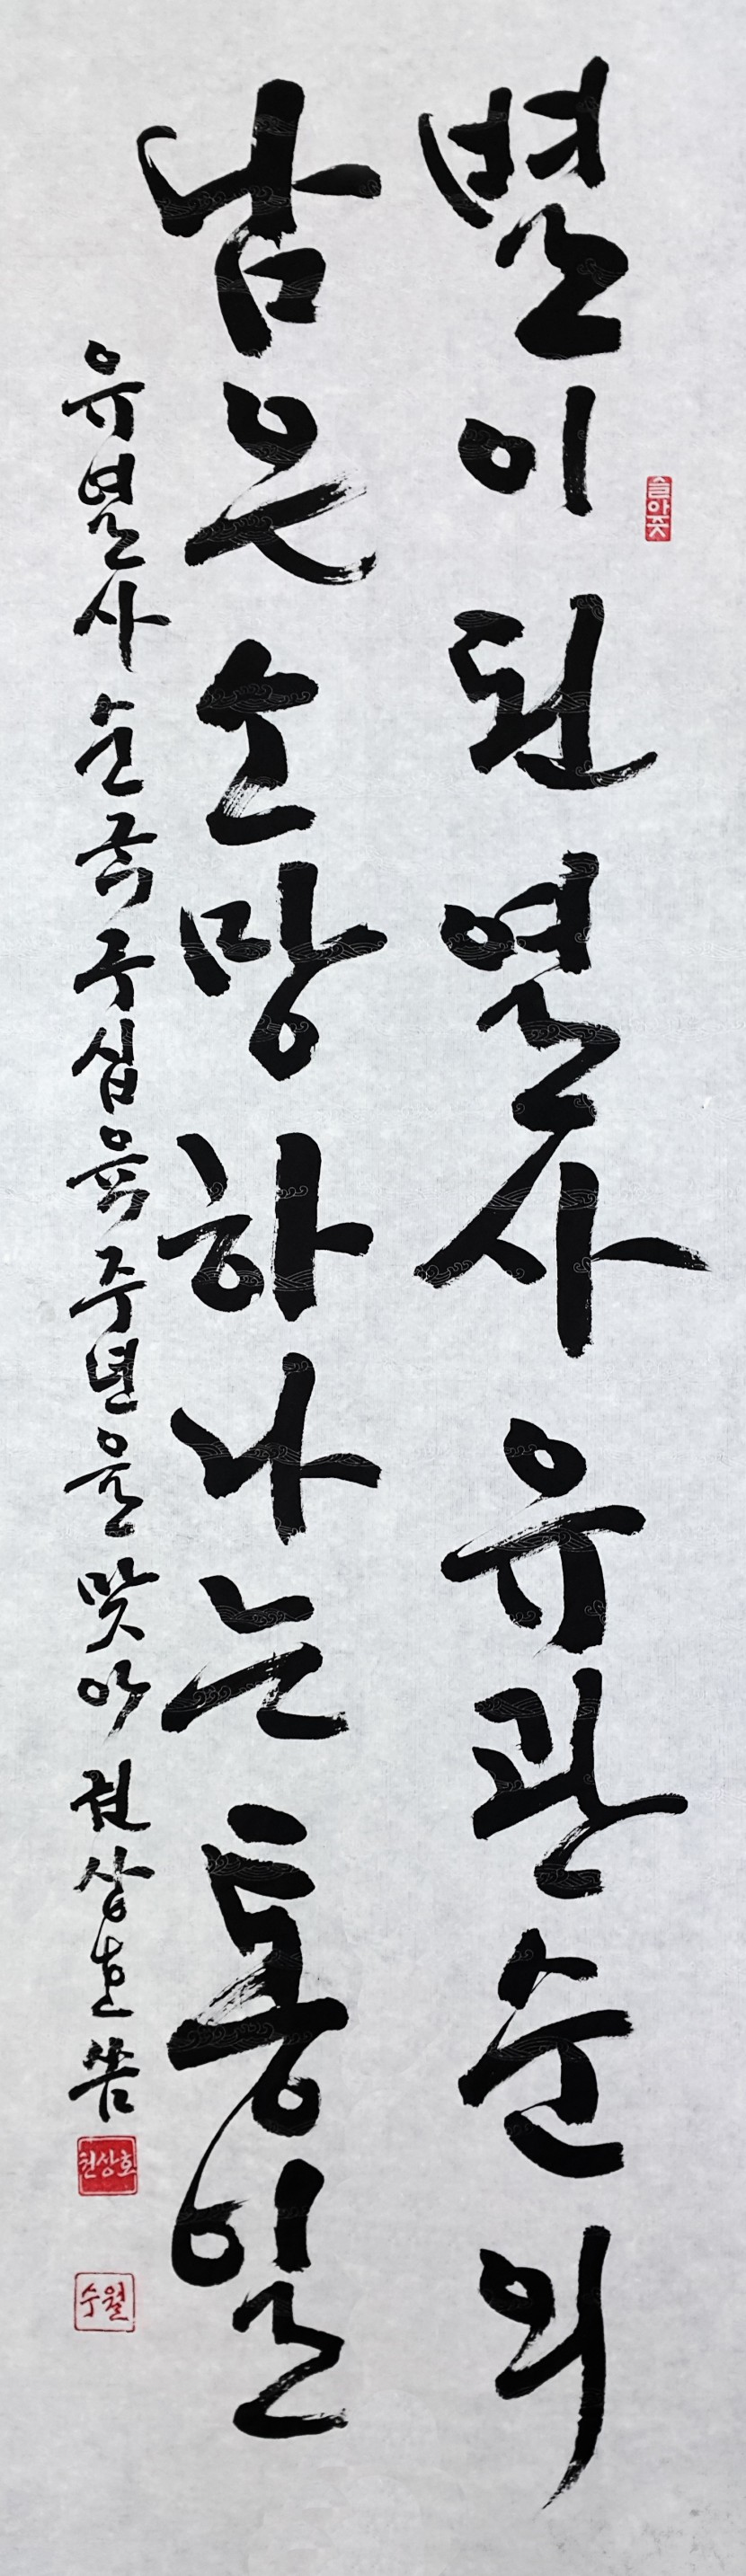 별이된열사유관순의
남은소망하나는통일
유열사순국구십육주년을맞아 천상호씀
천상호
수월